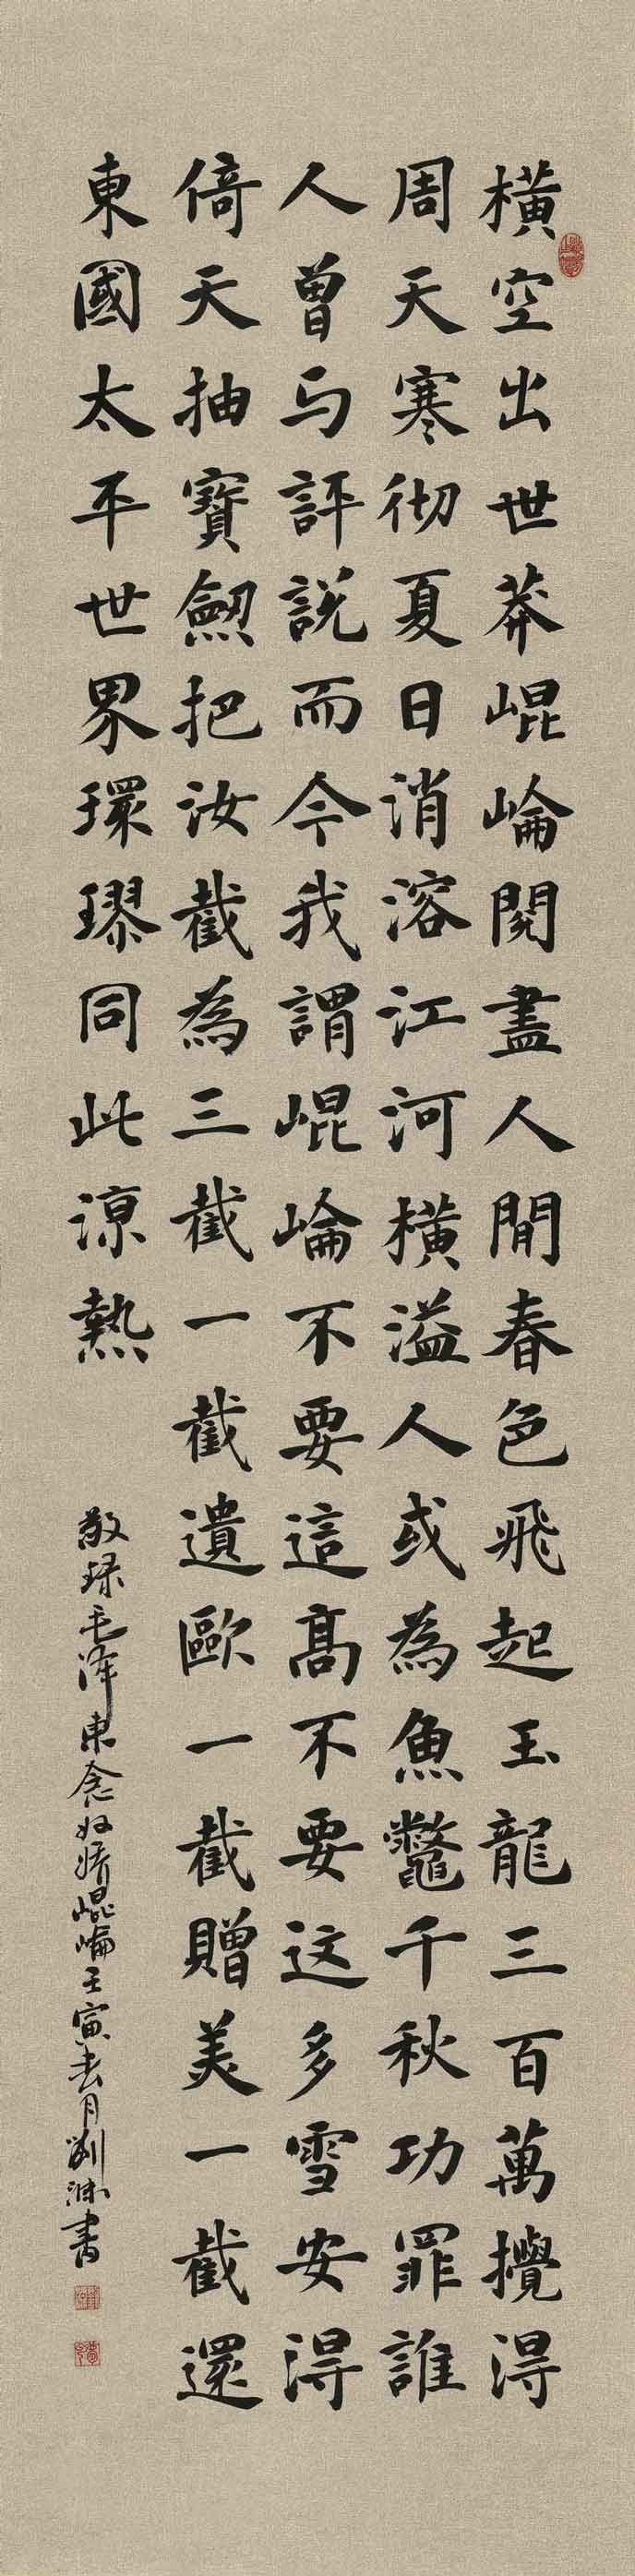 橫空出世莽崐崘閱盡人間春色飛起玉龍三百萬攪得
周天寒彻夏日消溶江河橫溢人或為魚鼈千秋功罪誰
人曾与評說而今我謂崐崘不要這髙不要这多雪安得
倚天抽寶劔把汝截為三截一截遺歐一截贈美一截還
東國太平世界環璆同此涼熱
敬録毛泽東念奴娇崐崘壬寅月劉書